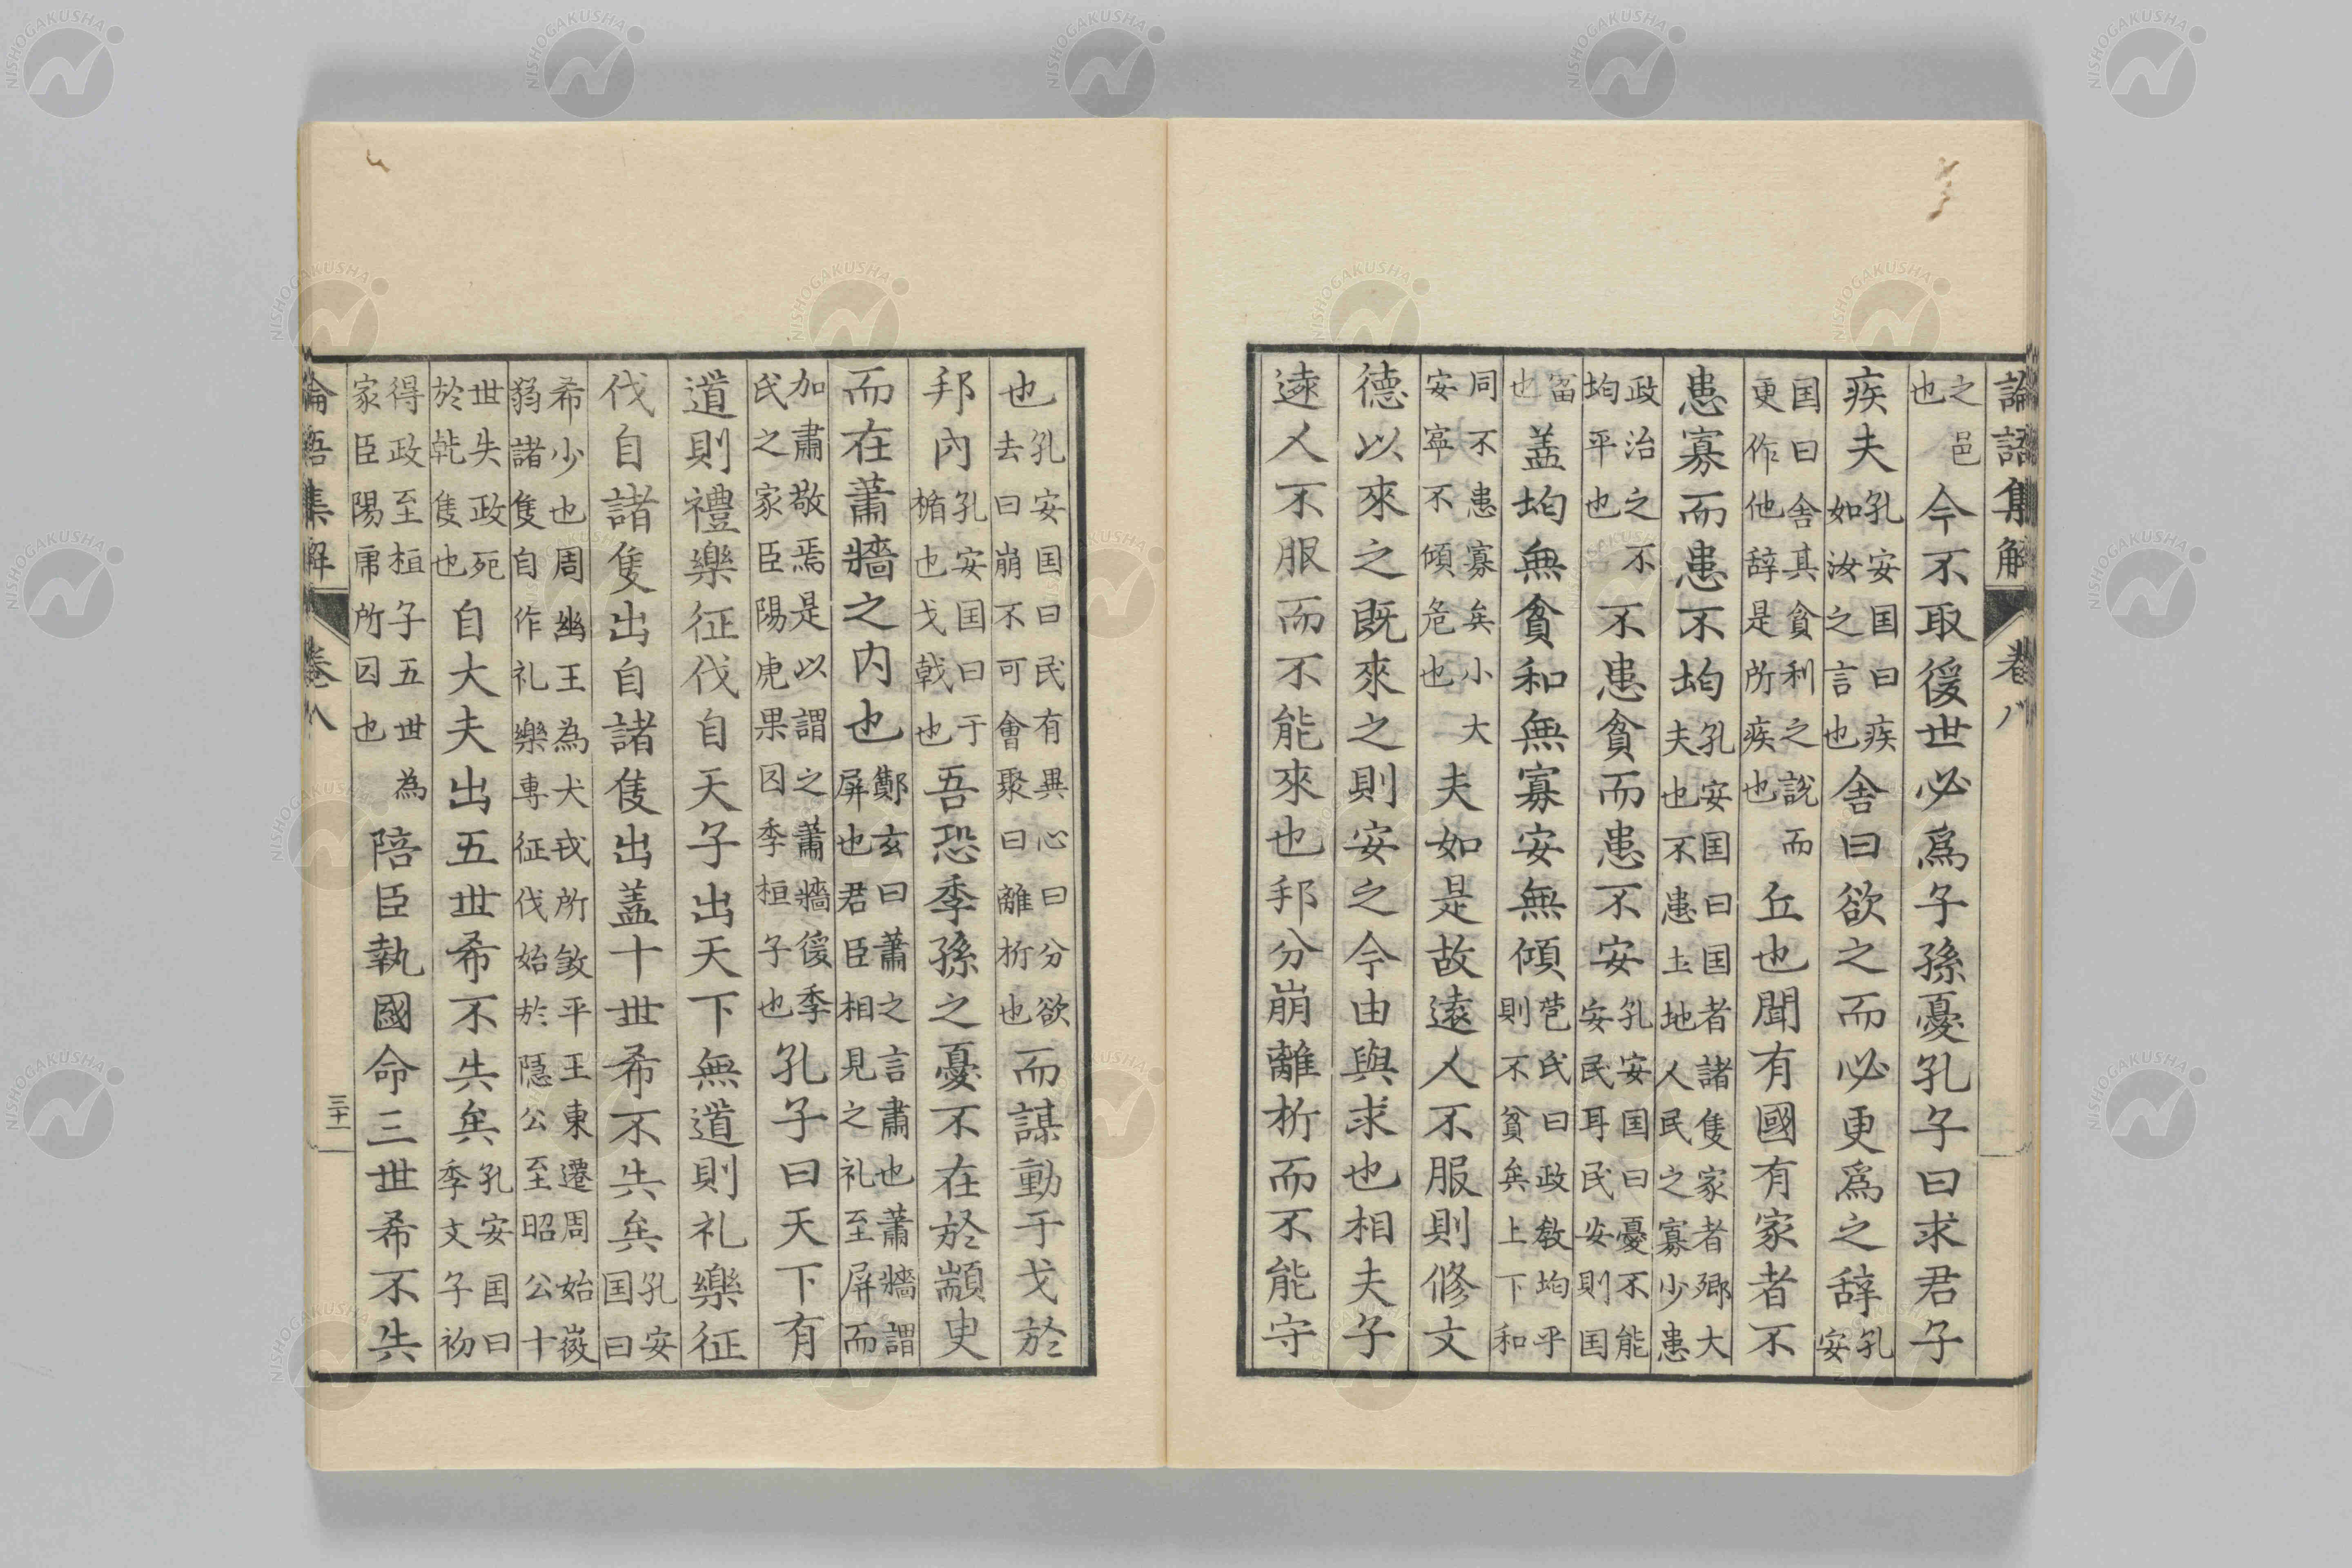 論語集解 卷八
之邑也今不取後世必爲子孫憂孔子曰求君子
疾夫孔安国曰疾如汝之言也舎曰欲之而必更爲之辞孔安
国曰舎其貪利之說而更作他辞是所疾也丘也聞有國有家者不
患寡而患不均孔安国曰国者諸侯家者郷大夫也不患土地人民之寡少患
政治之不均平也不患貧而患不安孔安国曰憂不能安民耳民安則国
富也盖均無貧和無寡安無傾苞氏曰政教均平則不貧矣上下和
同不患寡矣小大安寧不傾危也夫如是故遠人不服則修文
德以來之既來之則安之今由與求也相夫子
遠人不服而不能來也邦分崩離析而不能守
也孔安国曰民有異心曰分欲去曰崩不可會聚曰離析也而謀動干戈於
邦内孔安国曰干楯也戈戟也吾恐季孫之憂不在於顓臾
而在蕭牆之内也鄭玄曰蕭之言肅也蕭牆謂屏也君臣相見之礼至屏而
加肅敬焉是以謂之蕭牆後季氏之家臣陽虎果囚季桓子也孔子曰天下有
道則禮樂征伐自天子出天下無道則礼樂征
伐自諸侯出自諸侯出盖十世希不失矣孔安国曰
希少也周幽王為犬戎所殺平王東遷周始微弱諸侯自作礼樂專征伐始於隠公至昭公十
世失政死於乾侯也自大夫出五世希不失矣孔安国曰季文子初
得政至桓子五世為家臣陽虎所囚也陪臣執國命三世希不失
論語集解 卷八 三十一
NISHOGAKUSHA